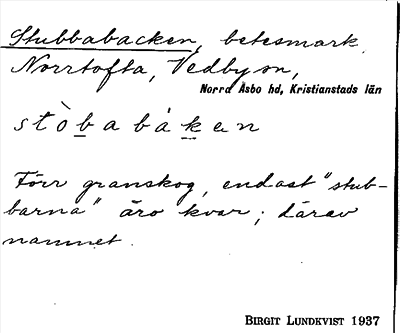 Stubbabacken, betesmark
Norrtofta, Vedby sn,
Norra Åsbo hd, Kristianstads län
stòbabákan
Förr granskog, endast "stub-
barna" äro kvar; därav
namnet.
BIRGIT LUNDKVIST 1937